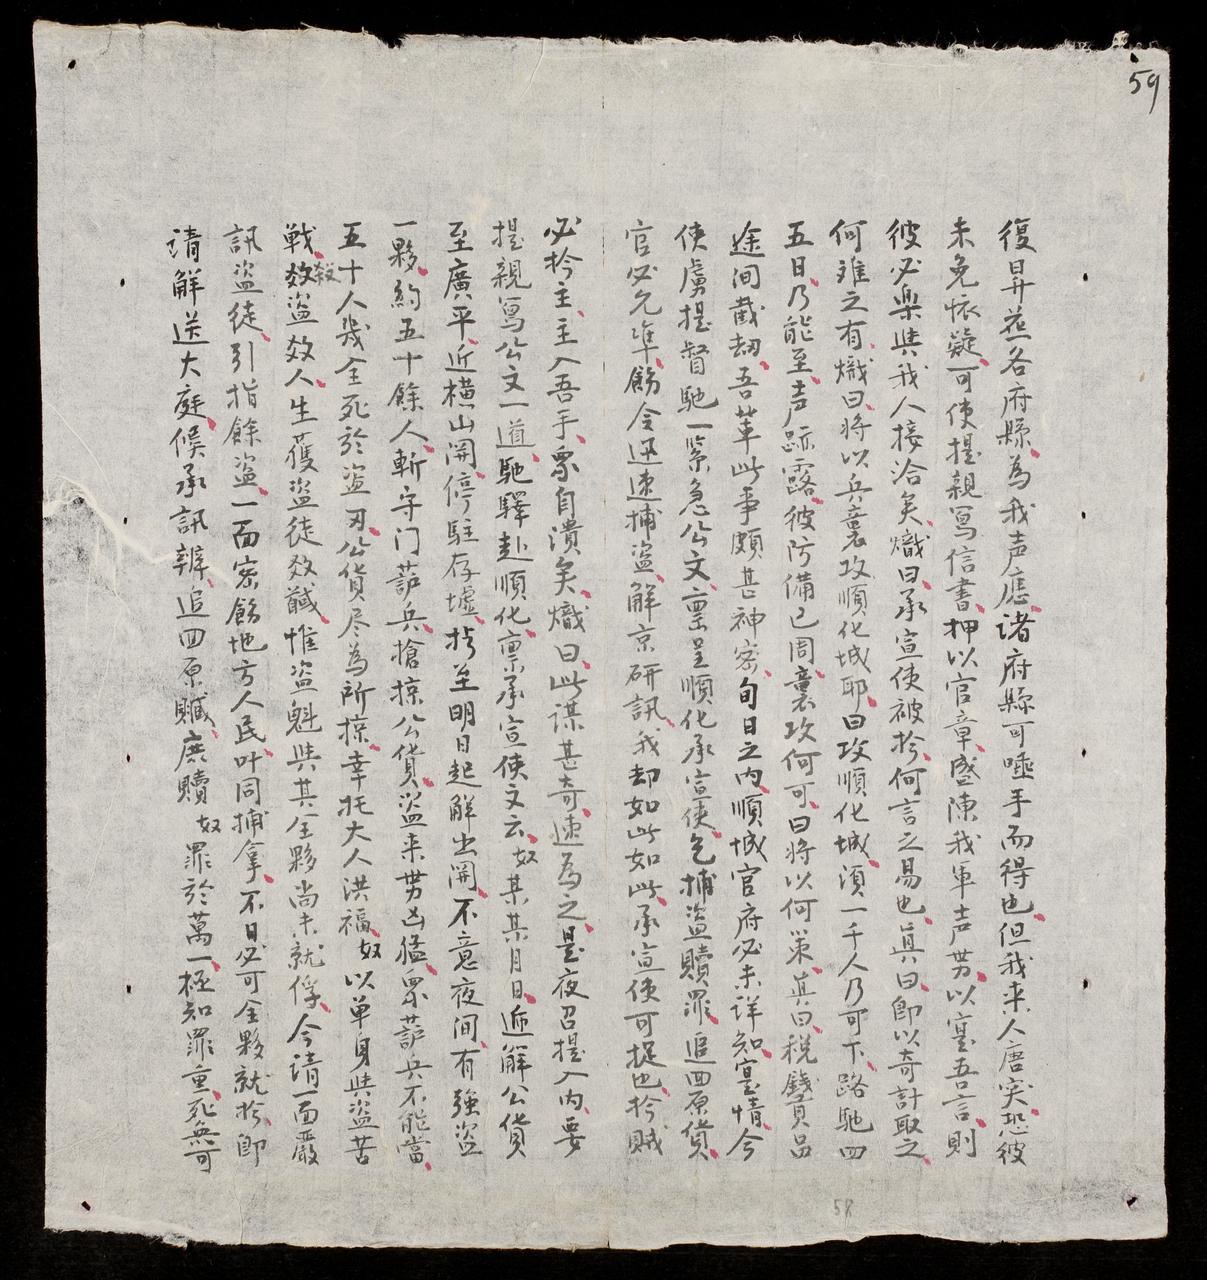 59
復昇並各府縣、為我声應、诸府縣可唾手而得也、但我来人唐突、恐彼
未免怀疑、可使提親冩信書、押以官章、盛陳我軍声势、以寔吾言、則
彼必楽與我人接洽矣、熾曰、承宣使被拎、何言之易也、眞曰、即以奇計取之、
何难之有、熾曰、将以兵襲攻順化城耶、曰攻順化城、湏一千人乃可下、路馳四
五日、乃能至、声跡露、彼防備已周、襲攻何可、曰将以何策、眞曰、税錢貢品
途间截劫、吾軰此事頗甚神密、旬日之内、順城官府必未详知寔情、今
使虜提督馳一緊急公文、禀呈順化承宣使、乞捕盗贖罪、追回原貨、
官必允凖、飭令迅速捕盗、解京研訊、我却如此如此、承宣使可捉也、拎贼
必拎主、主入吾手、衆自潰矣、熾曰、此谋甚奇、速為之、是夜召提入内、要
提親冩公文一道、馳驛赴順化、禀承宣使、文云、奴某某月日、逓解公貨
至廣平、近横山関、停駐存墟、拟至明日起解出関、不意夜间、有強盗
一夥、約五十餘人、斬守门葫兵、搶掠公貨、盗来势凶猛、衆葫兵不能當、
五十人幾全死於盗刃、公貨尽為所掠、幸托大人洪福、奴以单身與盗苦
戦、殺盗效人、生獲盗徒效馘、惟盗魁與其全夥尚未就俘、今請一面嚴
訊盗徒、引指餘盗、一面密飭地方人民、叶同捕拿、不日必可全夥就拎、即
請解送大庭、候承訊辦、追回原贓、庶贖奴罪於萬一、極知罪重、死無可
58